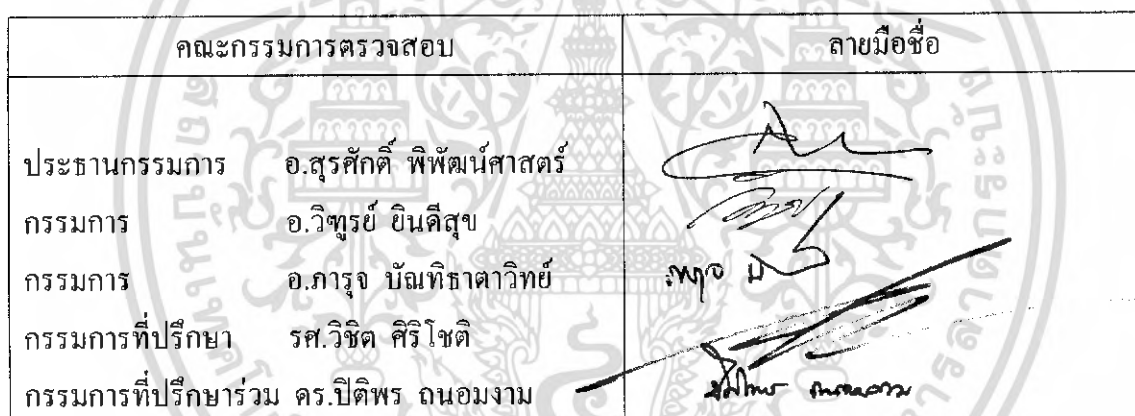 คณะกรรมการตรวจสอบ ลายมือชื่อ
ประธานกรรมการ อ.สุรศักดิ์ พิพัฒน์ศาสตร์
กรรมการ อ.วิฑูรย์ ยินดีสุข
กรรมการ อ.ภารุจ บัณฑิธาตาวิทย์
กรรมการที่ปรึกษา รศ.วิชิต ศิริโชติ
กรรมการที่ปรึกษาร่วม ดร.ปิติพร ถนอมงาม